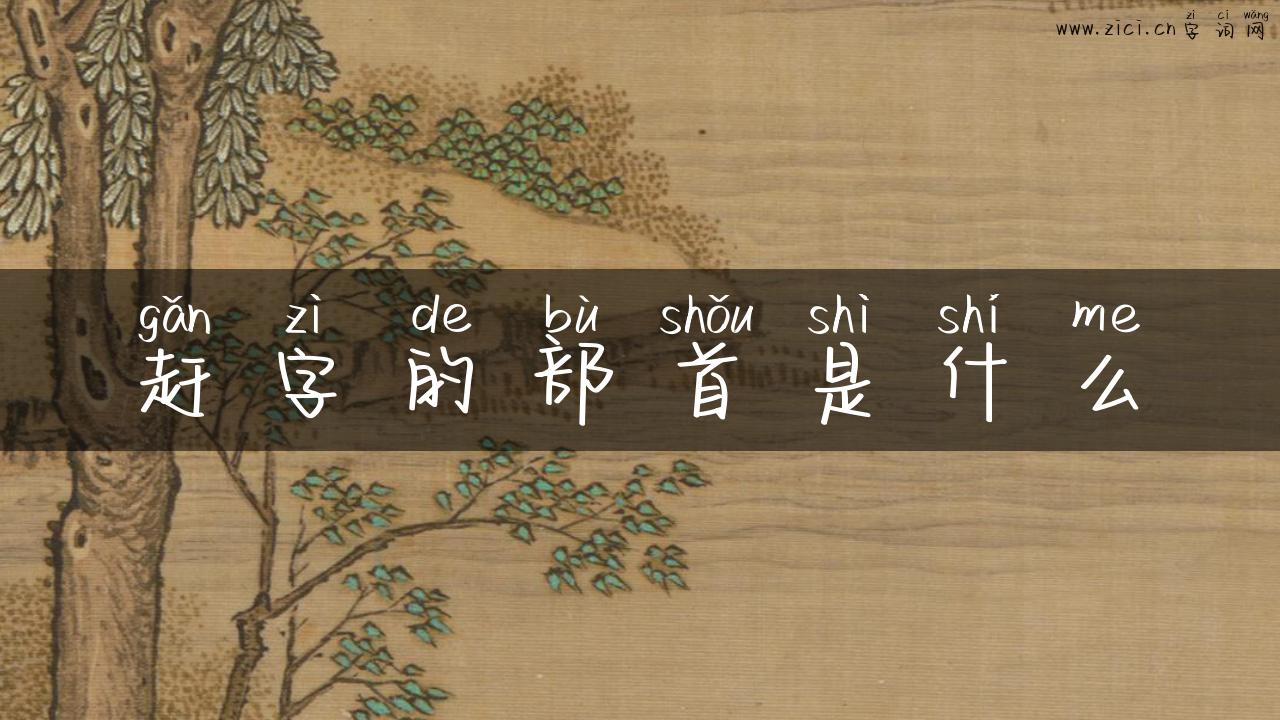 zì cí wǎng
www.zici.cn 字词网
gǎn zì de bù shǒu shì shí me
赶字的部首是什么